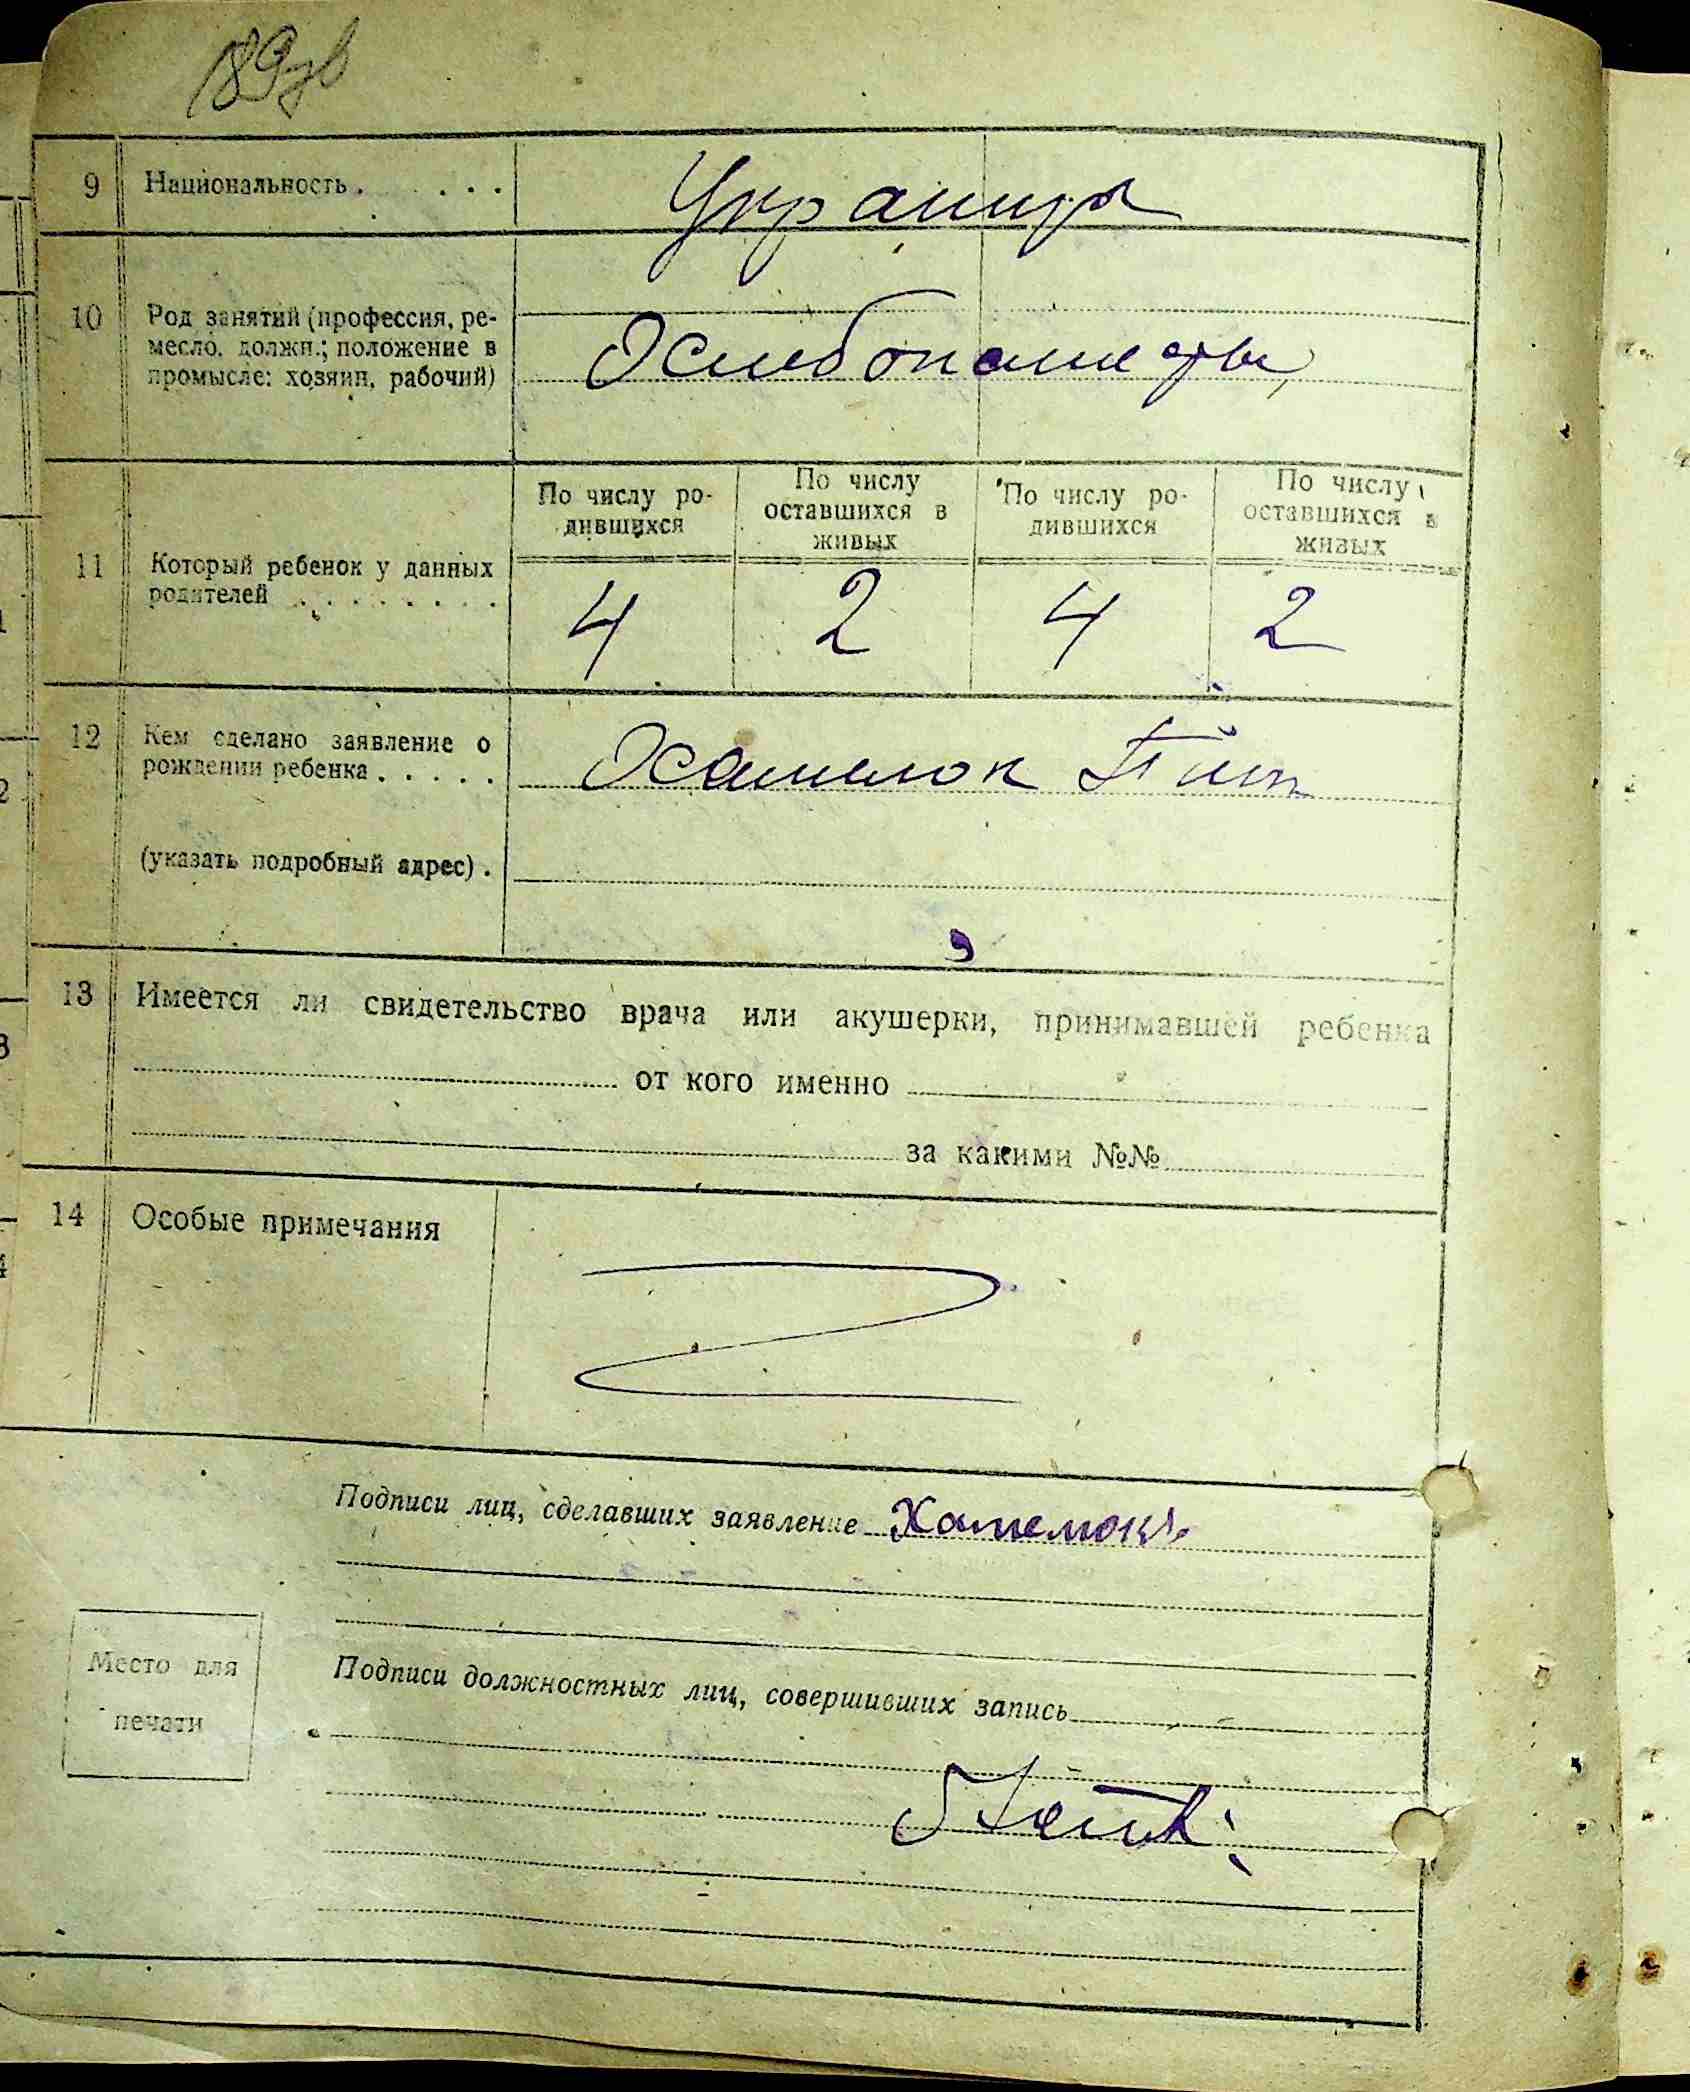 189 зв
9 Национальность . . . . Украинцы
10 Род занятий (профессия, ре-
месло, должн.; положение в
промысле: хозяин, рабочий)
Хлебопашцы
11 Который ребенок у данных
родителей . . . . . . . .
По числу ро-
дившихся
По числу
оставшихся в
живых
По числу ро-
дившихся
По числу
оставшихся в
живых
4 2 4 2
12 Кем сделано заявление о
рождении ребенка . . . . .
(указать подробный адрес) .
13 Имеется ли свидетельство врача или акушерки, принимавшей ребенка
от кого именно
за какими №№
14 Особые примечания
Подписи лиц, сделавших заявление
Место для
печати
Подписи должностных лиц, совершивших запись